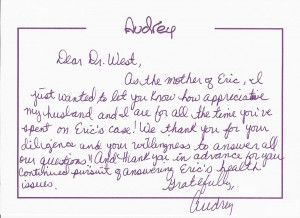 Audrey
Dear Dr. West,
As the mother of Eric, I
just wanted to let you know how appreciative
my husband and I are for all the time you've
spent on Eric's case! We thank you for your
diligence and your willingness to answer all
our questions!! And thank you in advance for your
continued pursuit of answering Eric's health
issues.
Gratefully,
Audrey